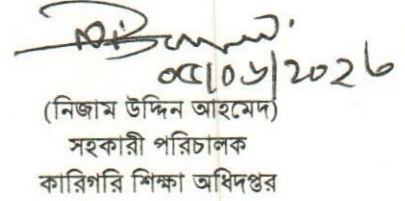 (নিজাম উদ্দিন আহমেদ)
সহকারী পরিচালক
কারিগরি শিক্ষা অধিদপ্তর